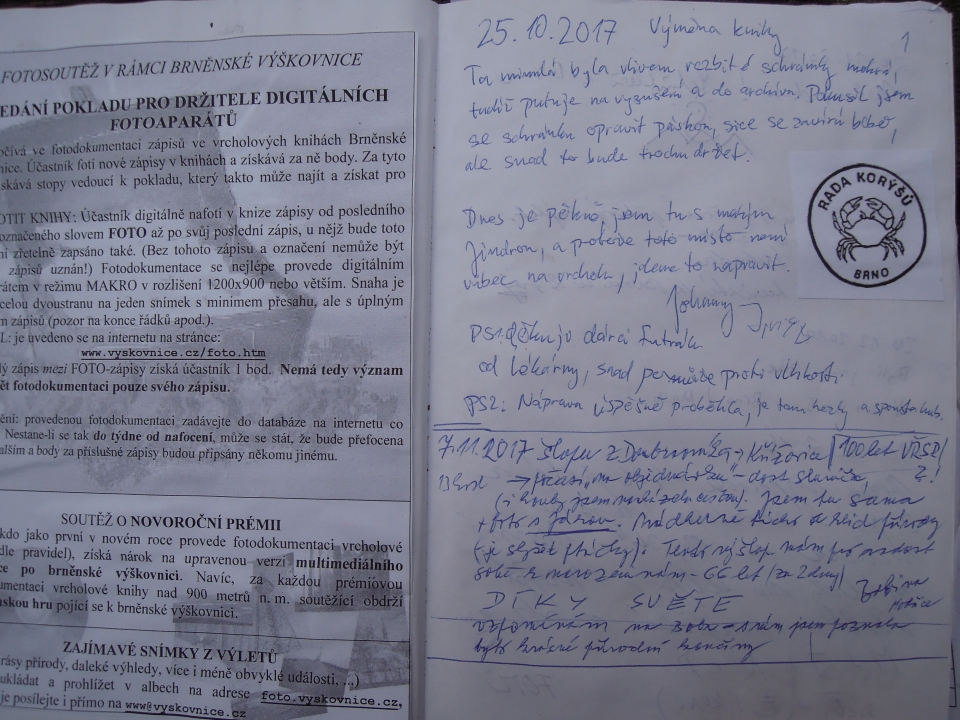 FOTOSOUTĚŽ V RÁMCI BRNĚNSKÉ VÝŠKOVNICE
EDÁNÍ POKLADU PRO DRŽITELE DIGITÁLNÍCH
FOTOAPARÁTŮ
očívá ve fotodokumentaci zápisů ve vrcholových knihách Brněnské
nice. Účastník fotí nové zápisy v knihách a získává za ně body. Za tyto
skává stopy vedoucí k pokladu, který takto může najít a získat pro
OTIT KNIHY: Účastník digitálně nafotí v knize zápisy od posledního
označeného slovem FOTO až po svůj poslední zápis, u nějž bude toto
ní zřetelně zapsáno také. (Bez tohoto zápisu a označení nemůže být
zápisů uznán!) Fotodokumentace se nejlépe provede digitálním
rátem v režimu MAKRO v rozlišení 1200x900 nebo větším. Snaha je
celou dvoustranu na jeden snímek s minimem přesahu, ale s úplným
m zápisů (pozor na konce řádků apod.).
L: je uvedeno se na internetu na stránce:
www.vyskovnice.cz/foto.htm
lý zápis mezi FOTO-zápisy získá účastník 1 bod. Nemá tedy význam
ět fotodokumentaci pouze svého zápisu.
ění: provedenou fotodokumentaci zadávejte do databáze na internetu co
Nestane-li se tak do týdne od nafocení, může se stát, že bude přefocena
alším a body za příslušné zápisy budou připsány někomu jinému.
SOUTĚŽ O NOVOROČNÍ PRÉMII
kdo jako první v novém roce provede fotodokumentaci vrcholové
dle pravidel), získá nárok na upravenou verzi multimediálního
ce po brněnské výškovnici. Navíc, za každou prémiovou
umentaci vrcholové knihy nad 900 metrů n. m. soutěžící obdrží
nskou hru pojící se k brněnské výškovnici.
ZAJÍMAVÉ SNÍMKY Z VÝLETŮ
rásy přírody, daleké výhledy, více i méně obvyklé události, ...)
ukládat a prohlížet v albech na adrese foto.vyskovnice.cz,
je posílejte i přímo na www@vyskovnice.cz
25.10.2017 Výměna knihy 1
Ta minulá byla vlivem rozbité schránky mokrá,
tudíž putuje na vysušení a do archivu. Pokusil jsem
se schránku opravit páskou, sice se zavírá blbě,
ale snad to bude trochu držet.
RADA KORÝŠŮ
BRNO
Dnes je pěkně, jsem tu s malým
Jindrou, a protože toto místo není
vůbec na vrcholu, jdeme to napravit.
Johnny
PS1: Děkuju dárci
od lékárny, snad pomůže proti vlhkosti.
PS2: Náprava úspěšně proběhla, je tam hezky a spousta hub.
7.11.2017 100 let VŘSR!
Jsem tu sama
Nádherné ticho a klid přírody
(je slyšet ptáčky).
k narozeninám - 66 let (za 2 dny)
DÍKY SVĚTE
vzpomínám na
krásné přírodní